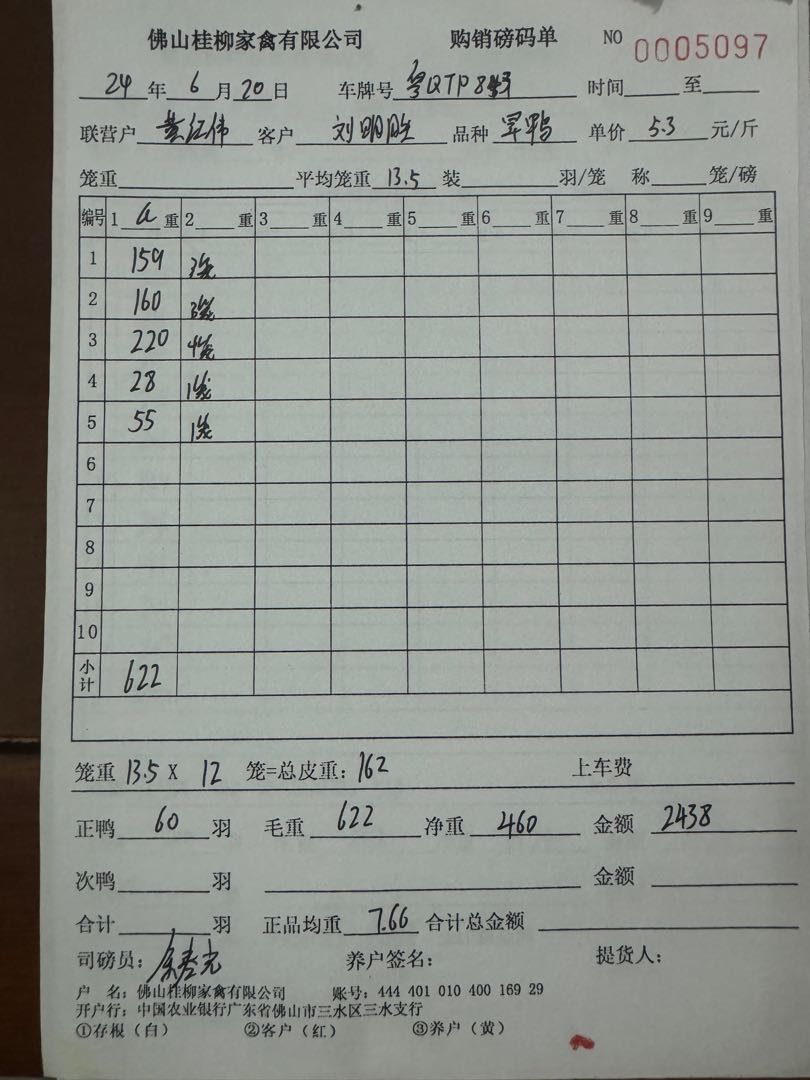 佛山桂柳家禽有限公司 购销磅码单 NO 0005097
24 年 6 月 20 日 车牌号 粤QTP8 时间 至
联营户 黄红伟 客户 刘明胜 品种 旱鸭 单价 5.3 元/斤
笼重 平均笼重 13.5 装 羽/笼 称 笼/磅
编号 1 重 2 重 3 重 4 重 5 重 6 重 7 重 8 重 9 重
1 159 3笼
2 160 3笼
3 220 4笼
4 28 1笼
5 55 1笼
6
7
8
9
10
小计 622
笼重 13.5 X 12 笼=总皮重: 162 上车费
正鸭 60 羽 毛重 622 净重 460 金额 2438
次鸭 羽 金额
合计 羽 正品均重 7.66 合计总金额
司磅员: 养户签名: 提货人:
户 名: 佛山桂柳家禽有限公司 账号: 444 401 010 400 169 29
开户行: 中国农业银行广东省佛山市三水区三水支行
①存根(白) ②客户(红) ③养户(黄)